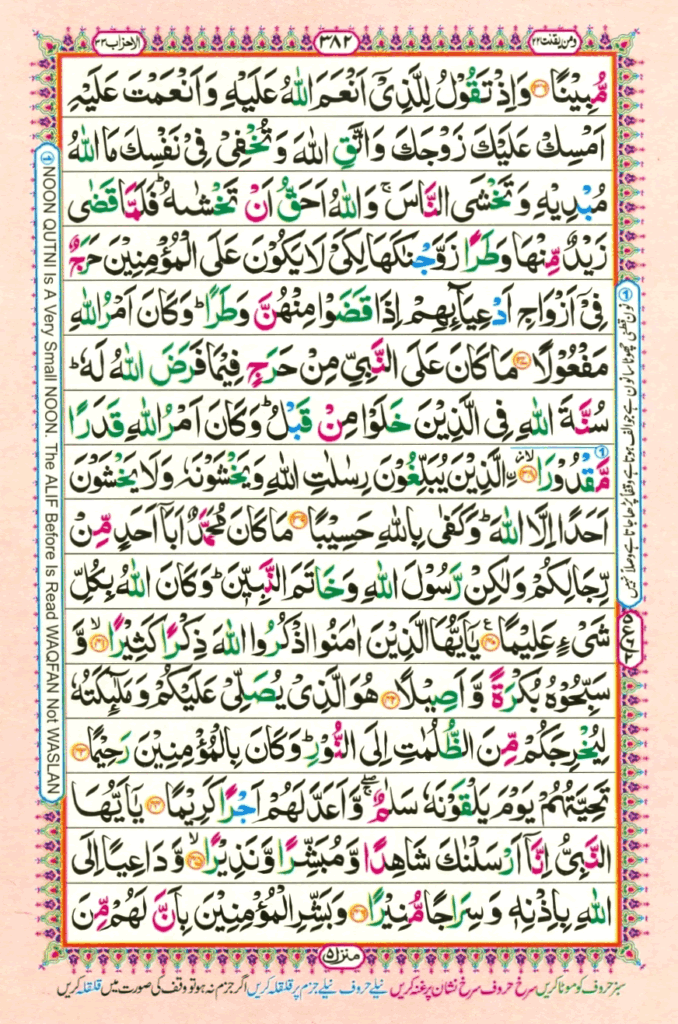 ومن يقنت ٢٢
٣٨٢
الاحزاب ٣٣
مُّبِيۡنًا ؕ‏﴿۳۶﴾ وَاِذۡ تَقُوۡلُ لِلَّذِىۡۤ اَنۡعَمَ اللّٰهُ عَلَيۡهِ وَاَنۡعَمۡتَ عَلَيۡهِ
اَمۡسِكۡ عَلَيۡكَ زَوۡجَكَ وَاتَّقِ اللّٰهَ وَتُخۡفِىۡ فِىۡ نَفۡسِكَ مَا اللّٰهُ
مُبۡدِيۡهِ وَتَخۡشَى النَّاسَ ۚ وَاللّٰهُ اَحَقُّ اَنۡ تَخۡشٰٮهُ ؕ فَلَمَّا قَضٰى
زَيۡدٌ مِّنۡهَا وَطَرًا زَوَّجۡنٰكَهَا لِكَىۡ لَا يَكُوۡنَ عَلَى الۡمُؤۡمِنِيۡنَ حَرَجٌ
فِىۡۤ اَزۡوَاجِ اَدۡعِيَآٮِٕهِمۡ اِذَا قَضَوۡا مِنۡهُنَّ وَطَرًا ؕ وَكَانَ اَمۡرُ اللّٰهِ
مَفۡعُوۡلًا‏﴿۳۷﴾ مَا كَانَ عَلَى النَّبِىِّ مِنۡ حَرَجٍ فِيۡمَا فَرَضَ اللّٰهُ لَهٗ ؕ
سُنَّةَ اللّٰهِ فِى الَّذِيۡنَ خَلَوۡا مِنۡ قَبۡلُ ؕ وَكَانَ اَمۡرُ اللّٰهِ قَدَرًا
مَّقۡدُوۡرًا ۙ‏﴿۳۸﴾ اۨلَّذِيۡنَ يُبَلِّغُوۡنَ رِسٰلٰتِ اللّٰهِ وَيَخۡشَوۡنَهٗ وَلَا يَخۡشَوۡنَ
اَحَدًا اِلَّا اللّٰهَ ؕ وَكَفٰى بِاللّٰهِ حَسِيۡبًا‏﴿۳۹﴾ مَا كَانَ مُحَمَّدٌ اَبَآ اَحَدٍ مِّنۡ
رِّجَالِكُمۡ وَلٰكِنۡ رَّسُوۡلَ اللّٰهِ وَخَاتَمَ النَّبِيّٖنَ ؕ وَكَانَ اللّٰهُ بِكُلِّ
شَىۡءٍ عَلِيۡمًا‏﴿۴۰﴾ يٰۤاَيُّهَا الَّذِيۡنَ اٰمَنُوا اذۡكُرُوا اللّٰهَ ذِكۡرًا كَثِيۡرًا ۙ‏﴿۴۱﴾ وَّ
سَبِّحُوۡهُ بُكۡرَةً وَّاَصِيۡلًا‏﴿۴۲﴾ هُوَ الَّذِىۡ يُصَلِّىۡ عَلَيۡكُمۡ وَمَلٰٓٮِٕكَتُهٗ
لِيُخۡرِجَكُمۡ مِّنَ الظُّلُمٰتِ اِلَى النُّوۡرِ ؕ وَكَانَ بِالۡمُؤۡمِنِيۡنَ رَحِيۡمًا‏﴿۴۳﴾
تَحِيَّتُهُمۡ يَوۡمَ يَلۡقَوۡنَهٗ سَلٰمٌ ۖۚ وَّاَعَدَّ لَهُمۡ اَجۡرًا كَرِيۡمًا‏﴿۴۴﴾ يٰۤاَيُّهَا
النَّبِىُّ اِنَّاۤ اَرۡسَلۡنٰكَ شَاهِدًا وَّمُبَشِّرًا وَّنَذِيۡرًا ۙ‏﴿۴۵﴾ وَّدَاعِيًا اِلَى
اللّٰهِ بِاِذۡنِهٖ وَسِرَاجًا مُّنِيۡرًا‏﴿۴۶﴾ وَبَشِّرِ الۡمُؤۡمِنِيۡنَ بِاَنَّ لَهُمۡ مِّنَ
① NOON QUTNI Is A Very Small NOON. The ALIF Before Is Read WAQFAN Not WASLAN
① نون قطنی چھوٹا سا نون ہے جو الف ہوتا ہے وقفاً پڑھا جاتا ہے وصلاً نہیں
منزل ۵
سبز حروف کو موٹا کریں سرخ حروف سرخ نشان پر غنہ کریں نیلے حروف نیلے جزم پر قلقلہ کریں اگر جزم نہ ہو تو وقف کی صورت میں قلقلہ کریں